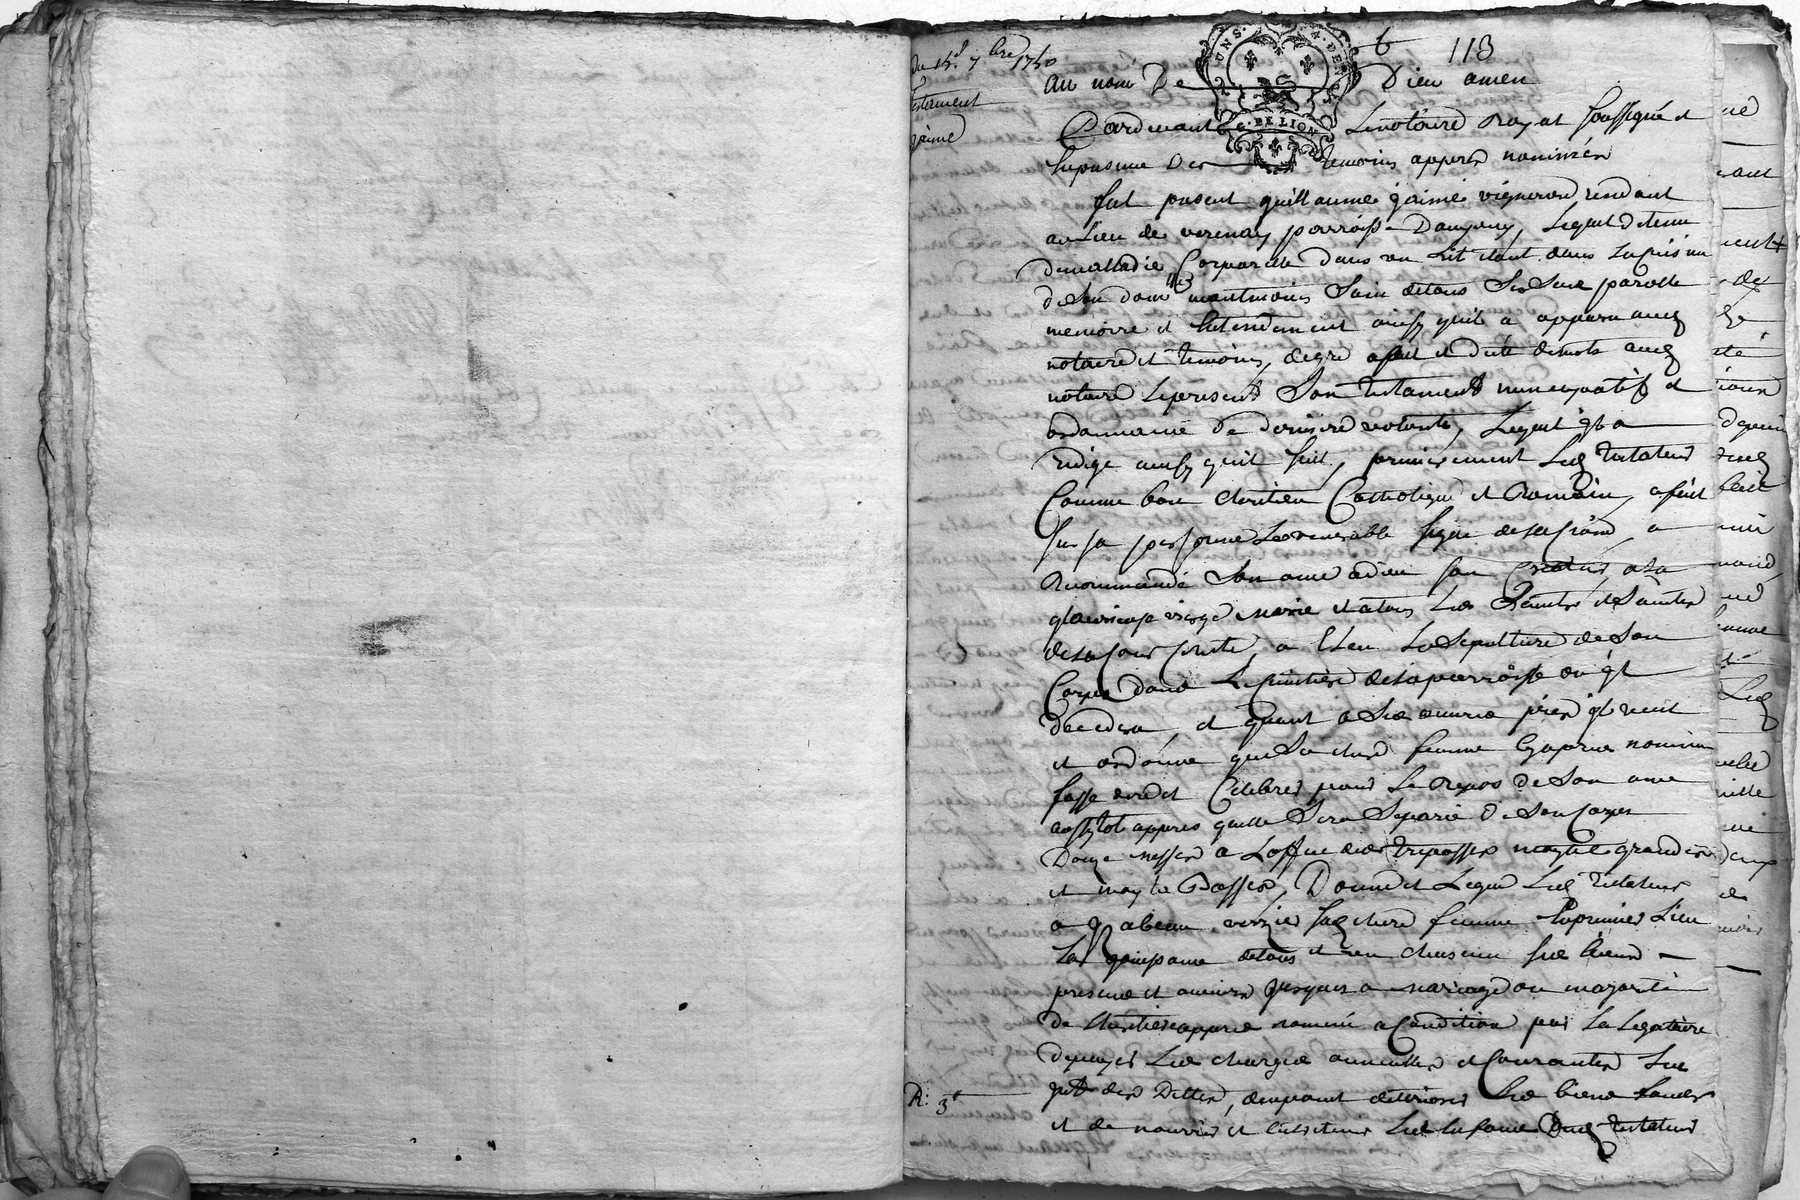 du 15e 7bre 1750
testament
jaime
6
118
DEUX SOLS 4 DEN
G. DE LION
au nom De Dieu amen
Pardevant Le notaire Royal soussigné et
en presence Des temoins appres nommés
fut present guillaume jaime vigneron rendant
au lieu de verenay parroisse Dampuy, Lequel detenu
de malladie Corporelle dans un Lit etant dans la cuisine
de son dom. neantmoins sain de tous Ses Sens parolle
memoire et Entendement ainsy quil a apparu aud
notaire et temoins, de gre a fait et dicté de mots aud
notaire Le present Son testament nuncupatif et
ordonnance De derniere volonté, Lequel jl a
redigé ainsy quil suit, premierement Led testateur
Comme bon chretien Catholique et Romain, a fait
sur sa personne Le venerable signe de la Croix, a
Recommandé Son ame a dieu son Createur, a la
glorieuse vierge marie et a tous Les Saints et Saintes
de la Cour Celeste, a Eleu La Sepulture de Son
Corps dans Le Cimetiere de la parroisse ou jl
decedera, et quant a Ses oeuvres pies jl veut
et ordonne que Sa chere femme Cy apres nommée
fasse dire et Celebrer pour Le Repos de Son ame
aussytot appres quelle Sera Separée de Son Corps
Douze messes a Loffice des trepasses moytié grandes
et moytié Basses, Donne et Legue Led testateur
a ysabeau verzier sad chere femme En premier Lieu
La jouissance de tous et un chascun ses biens
presents et avenirs jusques a mariage ou majorité
de Lheritier appres nommé a Condition par La Legataire
de payer Les charges annuelles et Courantes Les
jnterets des Dettes, de ne point deteriorer Les biens fonds
R: 3t
et de nourrir et Entretenir Les Enfants Dud testateur